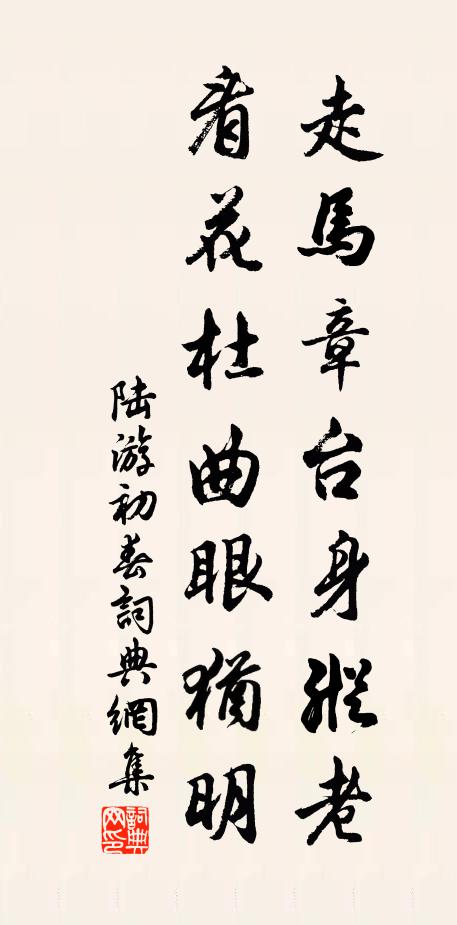 走馬章台身縱老
看花杜曲眼猶明
陸游初春詞典網集
詞典網印